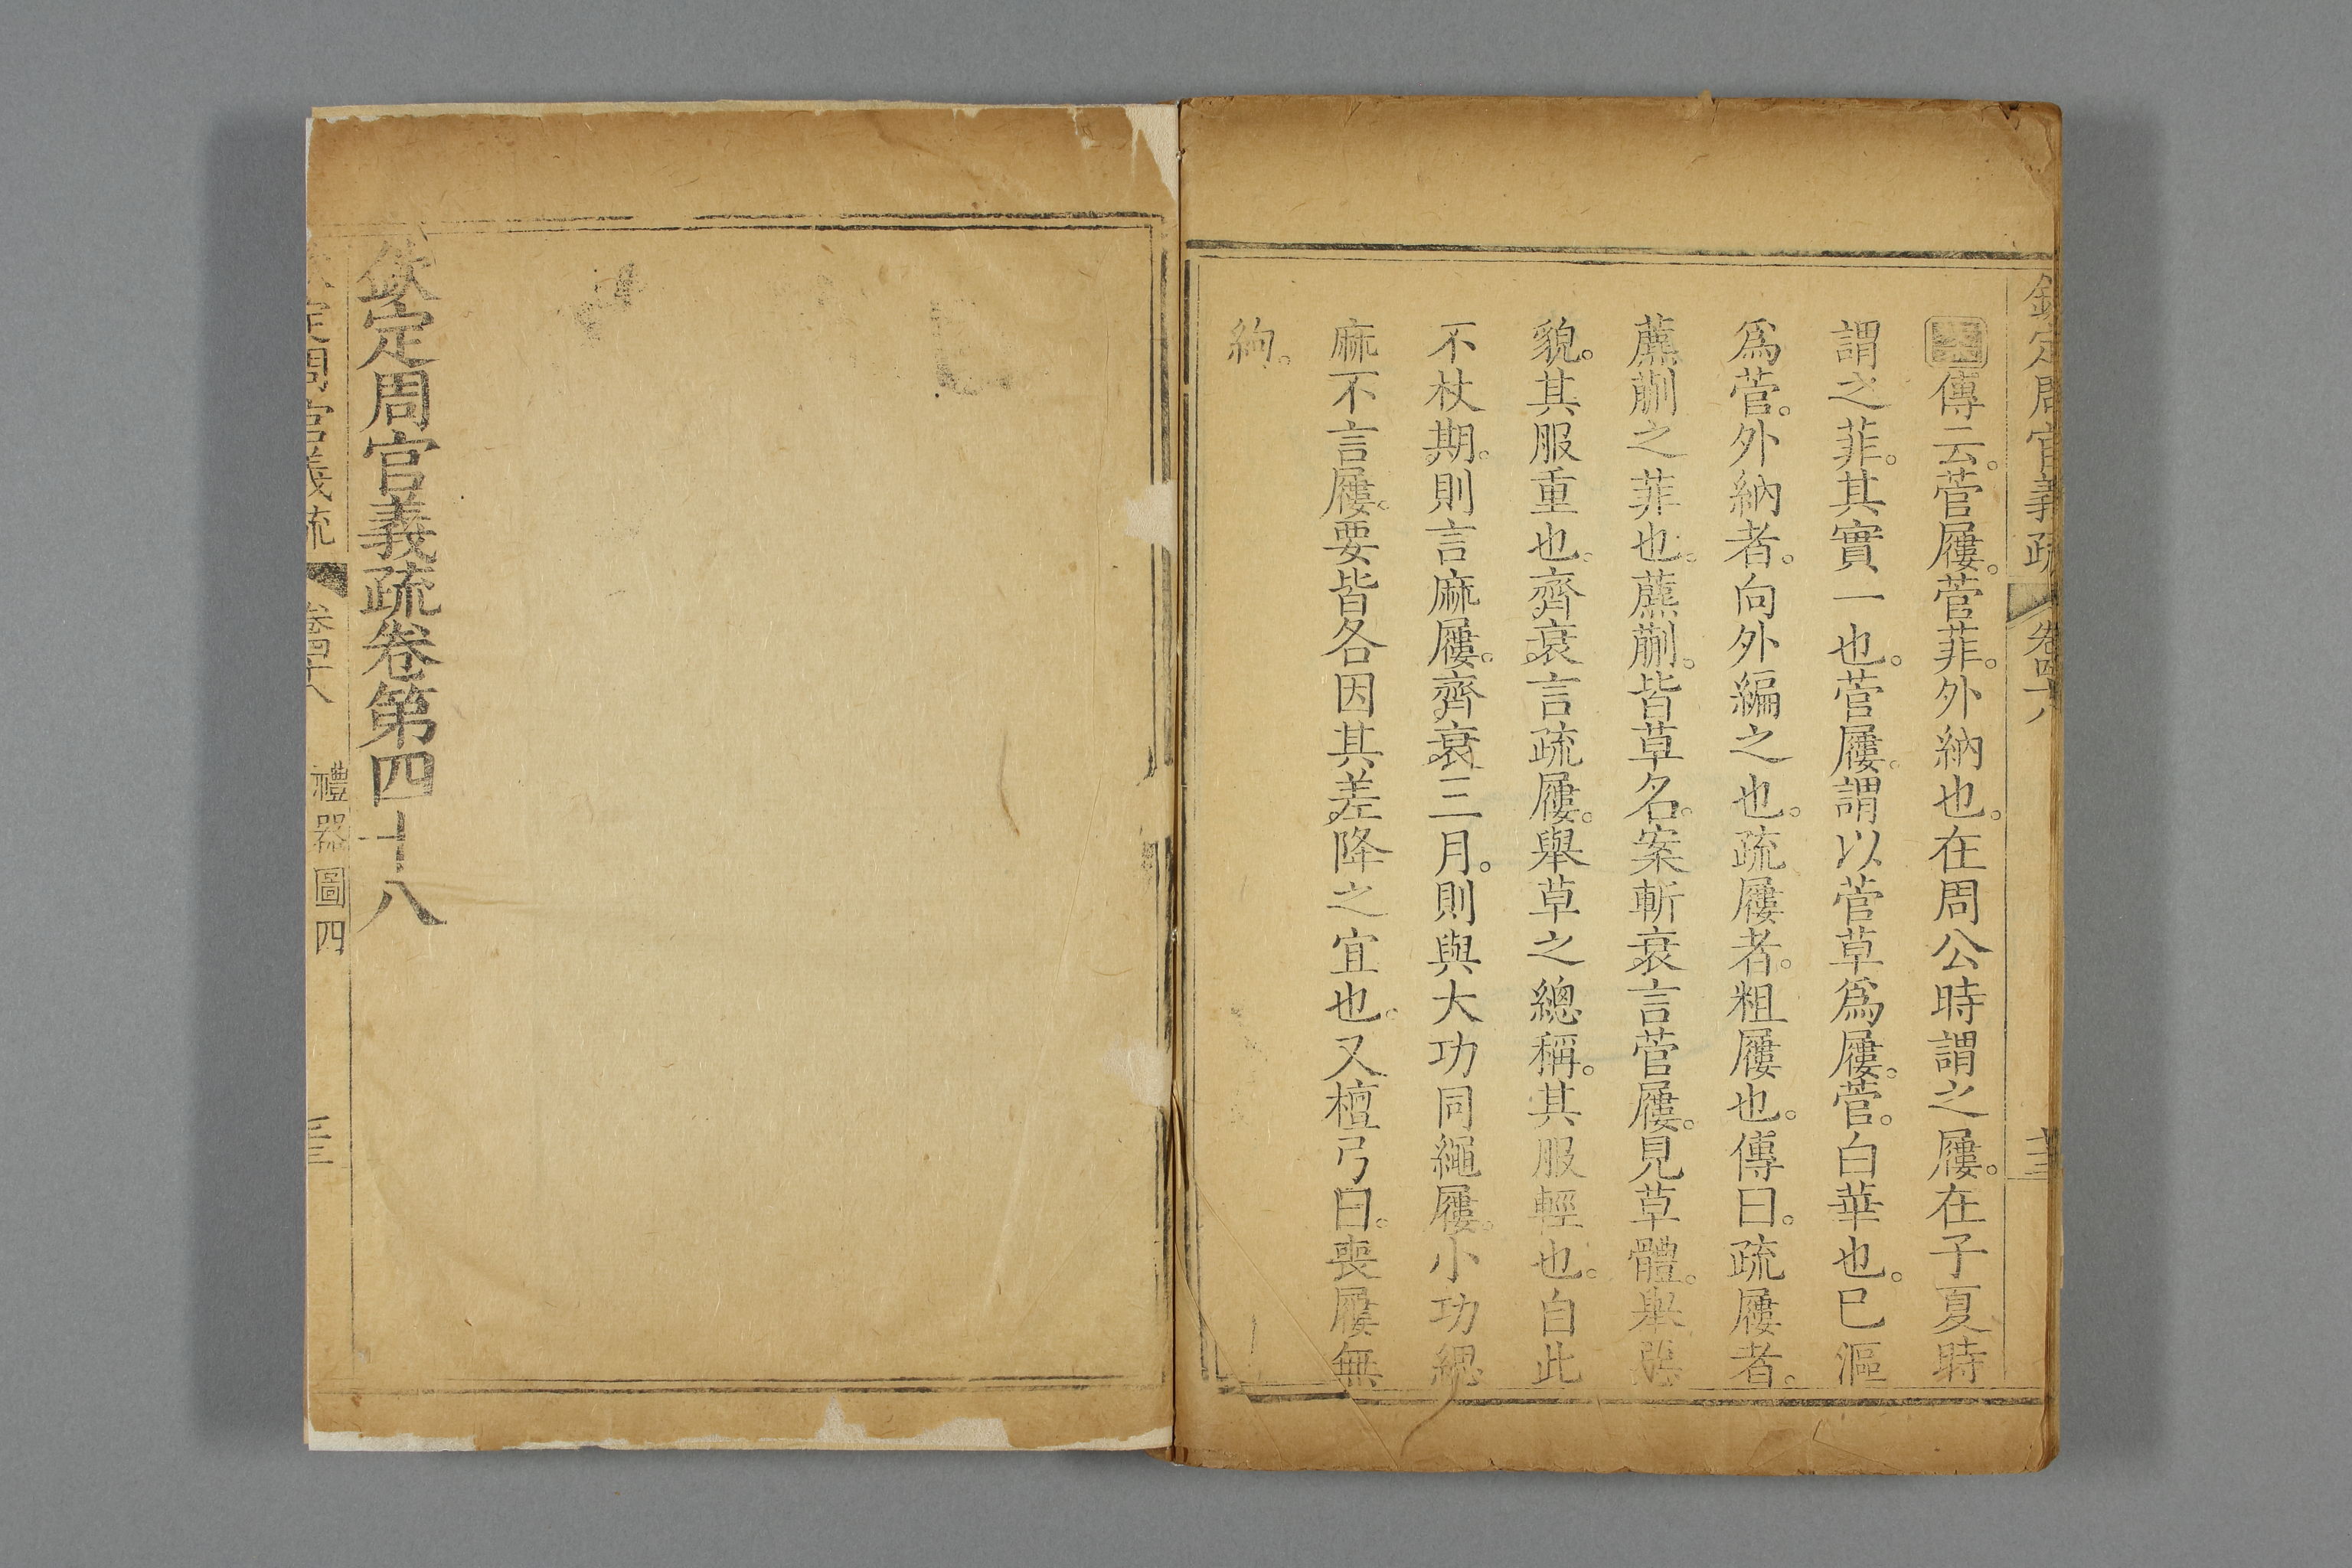 欽定周官義疏 卷四十八
傳云。菅屨。菅菲。外納也。在周公時謂之屨。在子夏時
謂之菲。其實一也。菅屨。謂以菅草爲屨。菅。白華也。巳漚
爲菅。外納者。向外編之也。疏屨者。粗屨也。傳曰。疏屨者。
藨蒯之菲也。藨蒯。皆草名。案斬衰言菅屨。見草體。舉
貌。其服重也。齊衰言疏屨。舉草之總稱。其服輕也。自此
不杖期。則言麻屨。齊衰三月。則與大功同繩屨。小功緦
麻不言屨。要皆各因其差降之宜也。又檀弓曰。喪屨無
絇。
欽定周官義疏卷第四十八
定周官義疏 卷四十八 禮器圖四